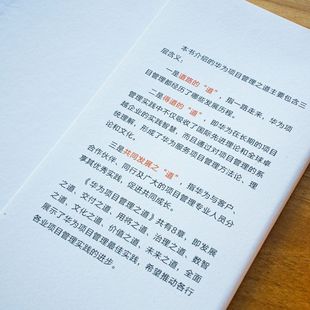 本书介绍的华为项目管理之道主要包含三
层含义：
一是道路的“道”，指一路走来，华为项
目管理都经历了哪些发展历程。
二是得道的“道”，即华为在长期的项目
管理实践中不仅吸收了国际先进理论和全球卓
越企业的实践智慧，而且通过对项目管理的系
统理解，形成了华为服务项目管理方法论、理
论和文化。
三是共同发展之“道”，指华为与客户、
合作伙伴、同行及广大的项目管理专业人员分
享其优秀实践，促进共同成长。
《华为项目管理之道》共有8章，即发展
之道、交付之道、用将之道、治理之道、数智
之道、文化之道、价值之道、未来之道，全面
展示了华为项目管理最佳实践，希望推动各行
各业项目管理实践的进步。